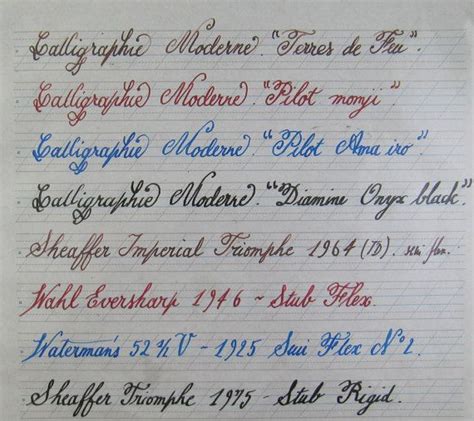 Calligraphie Moderne. "Terres de Feu".
Calligraphie Moderne. "Pilot momji"
Calligraphie Moderne. "Pilot Ama iro"
Calligraphie Moderne. "Diamine Onyx black"
Sheaffer Imperial Triomphe 1964 (TD). semi flex.
Wahl Eversharp 1946 ~ Stub Flex.
Waterman's 52 ½ V - 1925 Semi Flex N°2.
Sheaffer Triomphe 1975 - Stub Rigid.